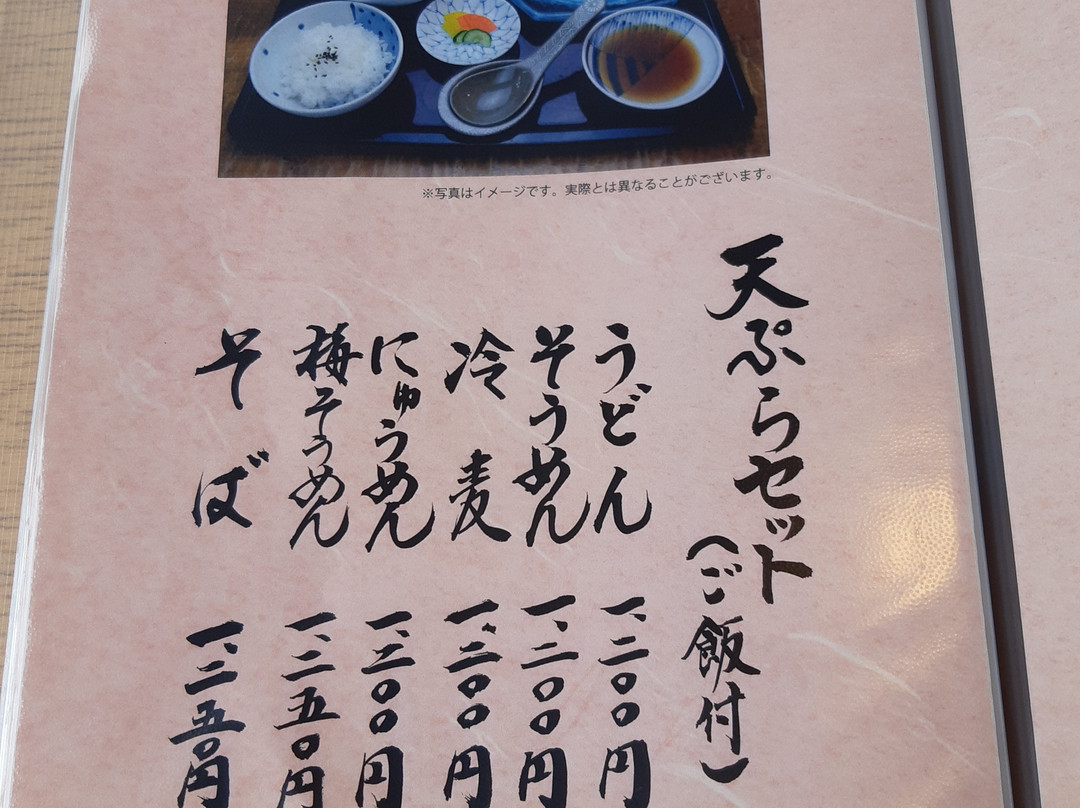 ※写真はイメージです。実際とは異なることがございます。
天ぷらセット
（ご飯付）
うどん 一、二〇〇円
そうめん 一、二〇〇円
冷麦 一、二〇〇円
にゅうめん 一、二〇〇円
梅そうめん 一、二五〇円
そば 一、二五〇円